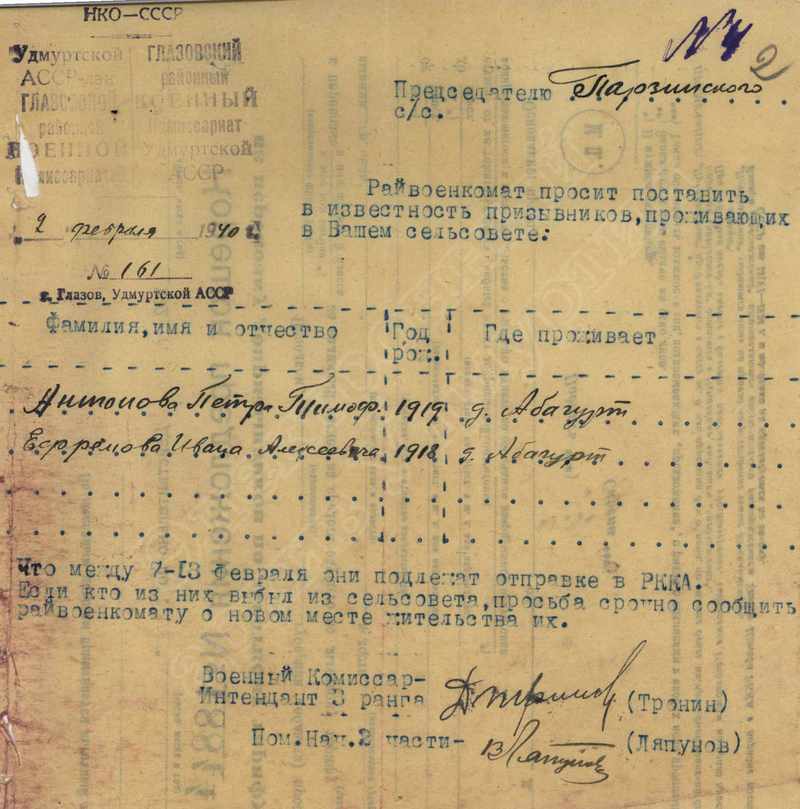 НКО—СССР
Удмуртской ГЛАЗОВСКИЙ
АССР районный
ГЛАЗОВСКОЙ ВОЕННЫЙ
комиссариат
ВОЕННОЙ Удмуртской
АССР
2 февраля 1940 г.
№ 161
г. Глазов, Удмуртской АССР
№ 4 2
Председателю Парзинского
с/с.
Райвоенкомат просит поставить
в известность призывников, проживающих
в Вашем сельсовете:
Фамилия, имя и отчество Год рож. Где проживает
Антонова Петра Тимоф. 1919 д. Абагурт
Ефремова Ивана Алексеевича 1918 д. Абагурт
Что между 7-13 февраля они подлежат отправке в РККА.
Если кто из них выбыл из сельсовета, просьба срочно сообщить
райвоенкомату о новом месте жительства их.
Военный Комиссар-
Интендант 3 ранга (Тронин)
Пом.Нач.2 части- (Ляпунов)